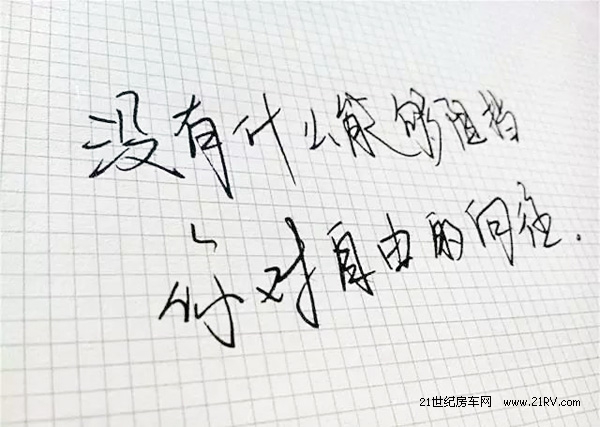 没有什么能够阻挡
你对自由的向往.
21世纪房车网 www.21RV.com